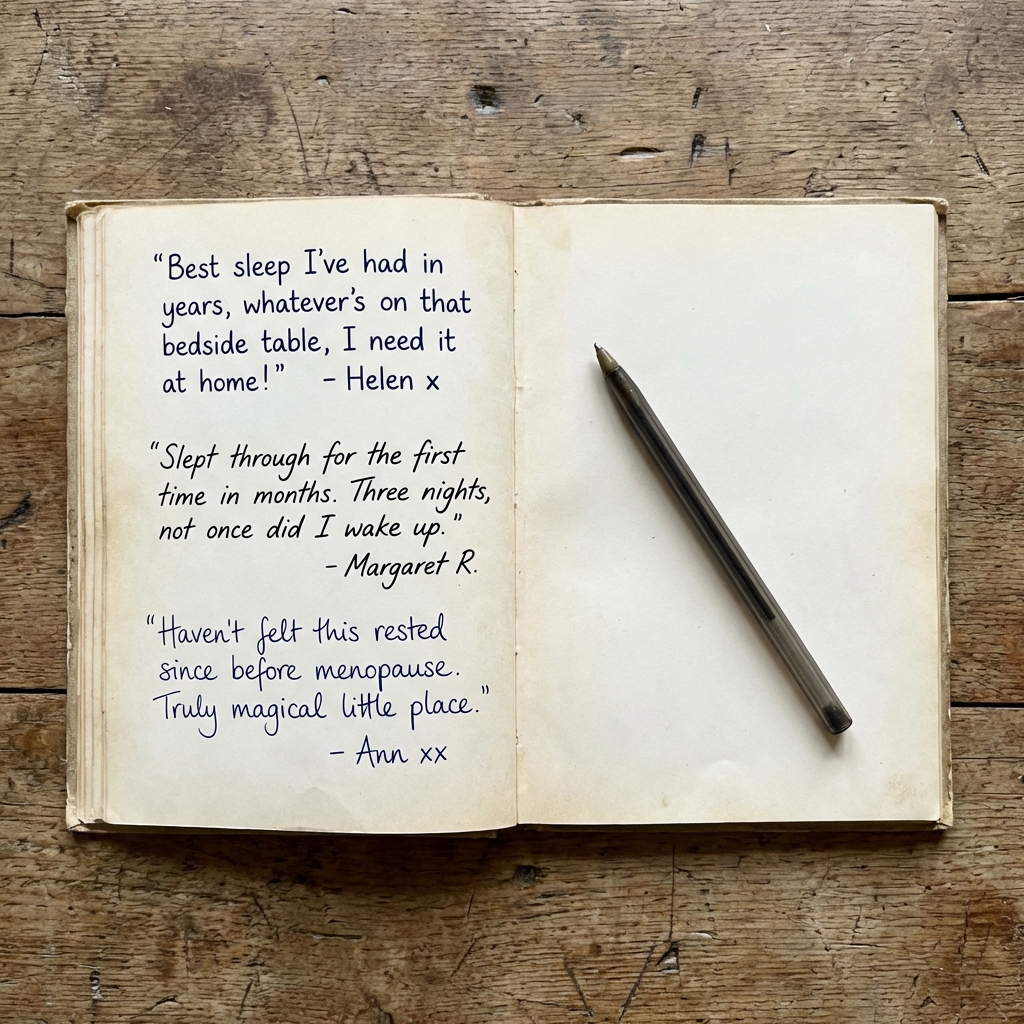 “Best sleep I’ve had in
years, whatever’s on that
bedside table, I need it
at home!” – Helen x
“Slept through for the first
time in months. Three nights,
not once did I wake up.”
– Margaret R.
“Haven't felt this rested
since before menopause.
Truly magical little place.”
– Ann xx